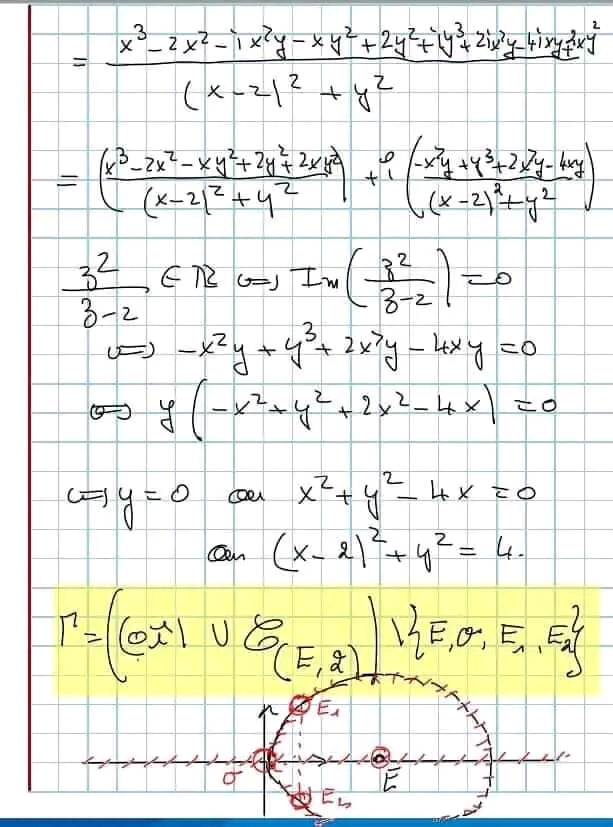 = (x³ - 2x² - ix²y - xy² + 2y² + iy³ + 2ix²y - 4ixy + 2xy²) / ((x-2)² + y²)
= ((x³ - 2x² - xy² + 2y² + 2xy²) / ((x-2)² + y²)) + i ((-x²y + y³ + 2x²y - 4xy) / ((x-2)² + y²))
z² / (z-2) ∈ ℝ ⟺ Im(z² / (z-2)) = 0
⟺ -x²y + y³ + 2x²y - 4xy = 0
⟺ y(-x² + y² + 2x² - 4x) = 0
⟺ y = 0 ou x² + y² - 4x = 0
ou (x-2)² + y² = 4.
Γ = ((O i⃗) ∪ 𝒞(E,2)) \ {E, O, E₁, E₂}
E₁
O E
E₂